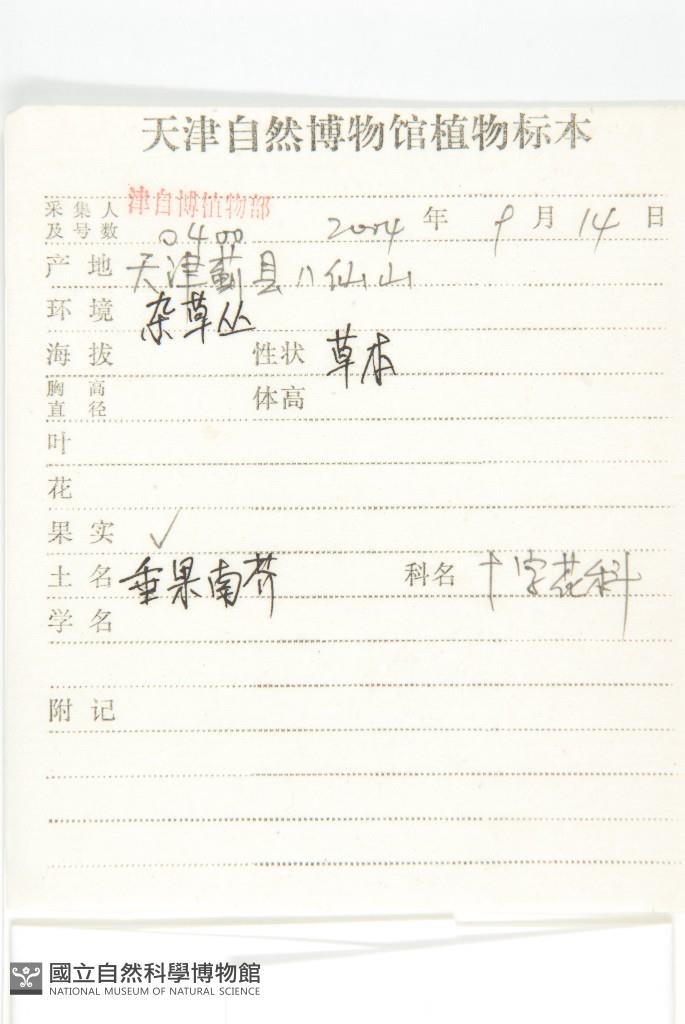 天津自然博物馆植物标本
采集人 津自博植物部
及号数 0400 2004年 9月14日
产地 天津蓟县八仙山
环境 杂草丛
海拔 性状 草本
胸高
直径 体高
叶
花
果实 ✓
土名 垂果南芥 科名 十字花科
学名
附记
國立自然科學博物館
NATIONAL MUSEUM OF NATURAL SCIENCE